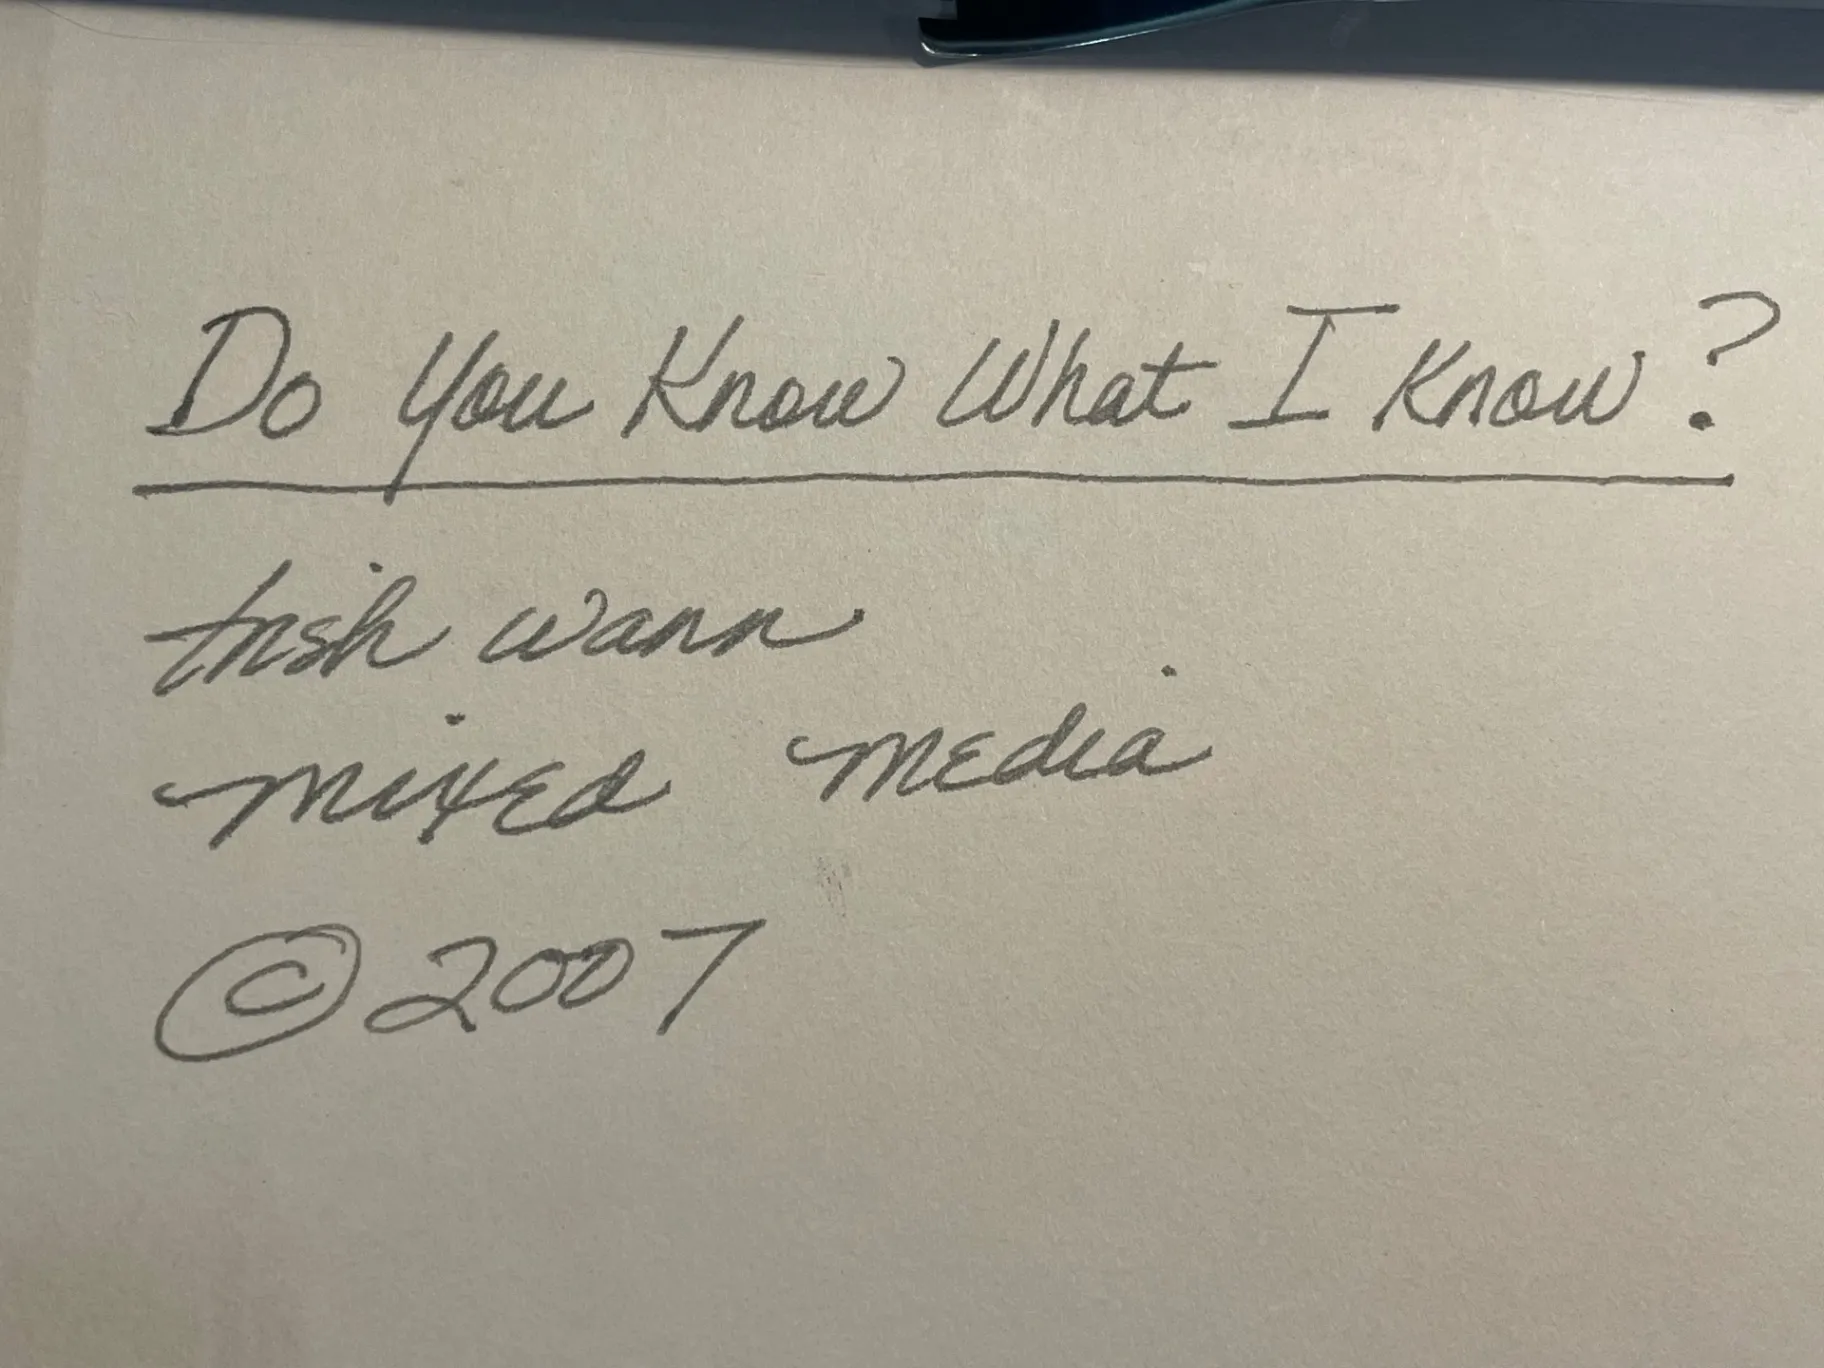 Do You Know What I Know?
trish wann
mixed media
© 2007